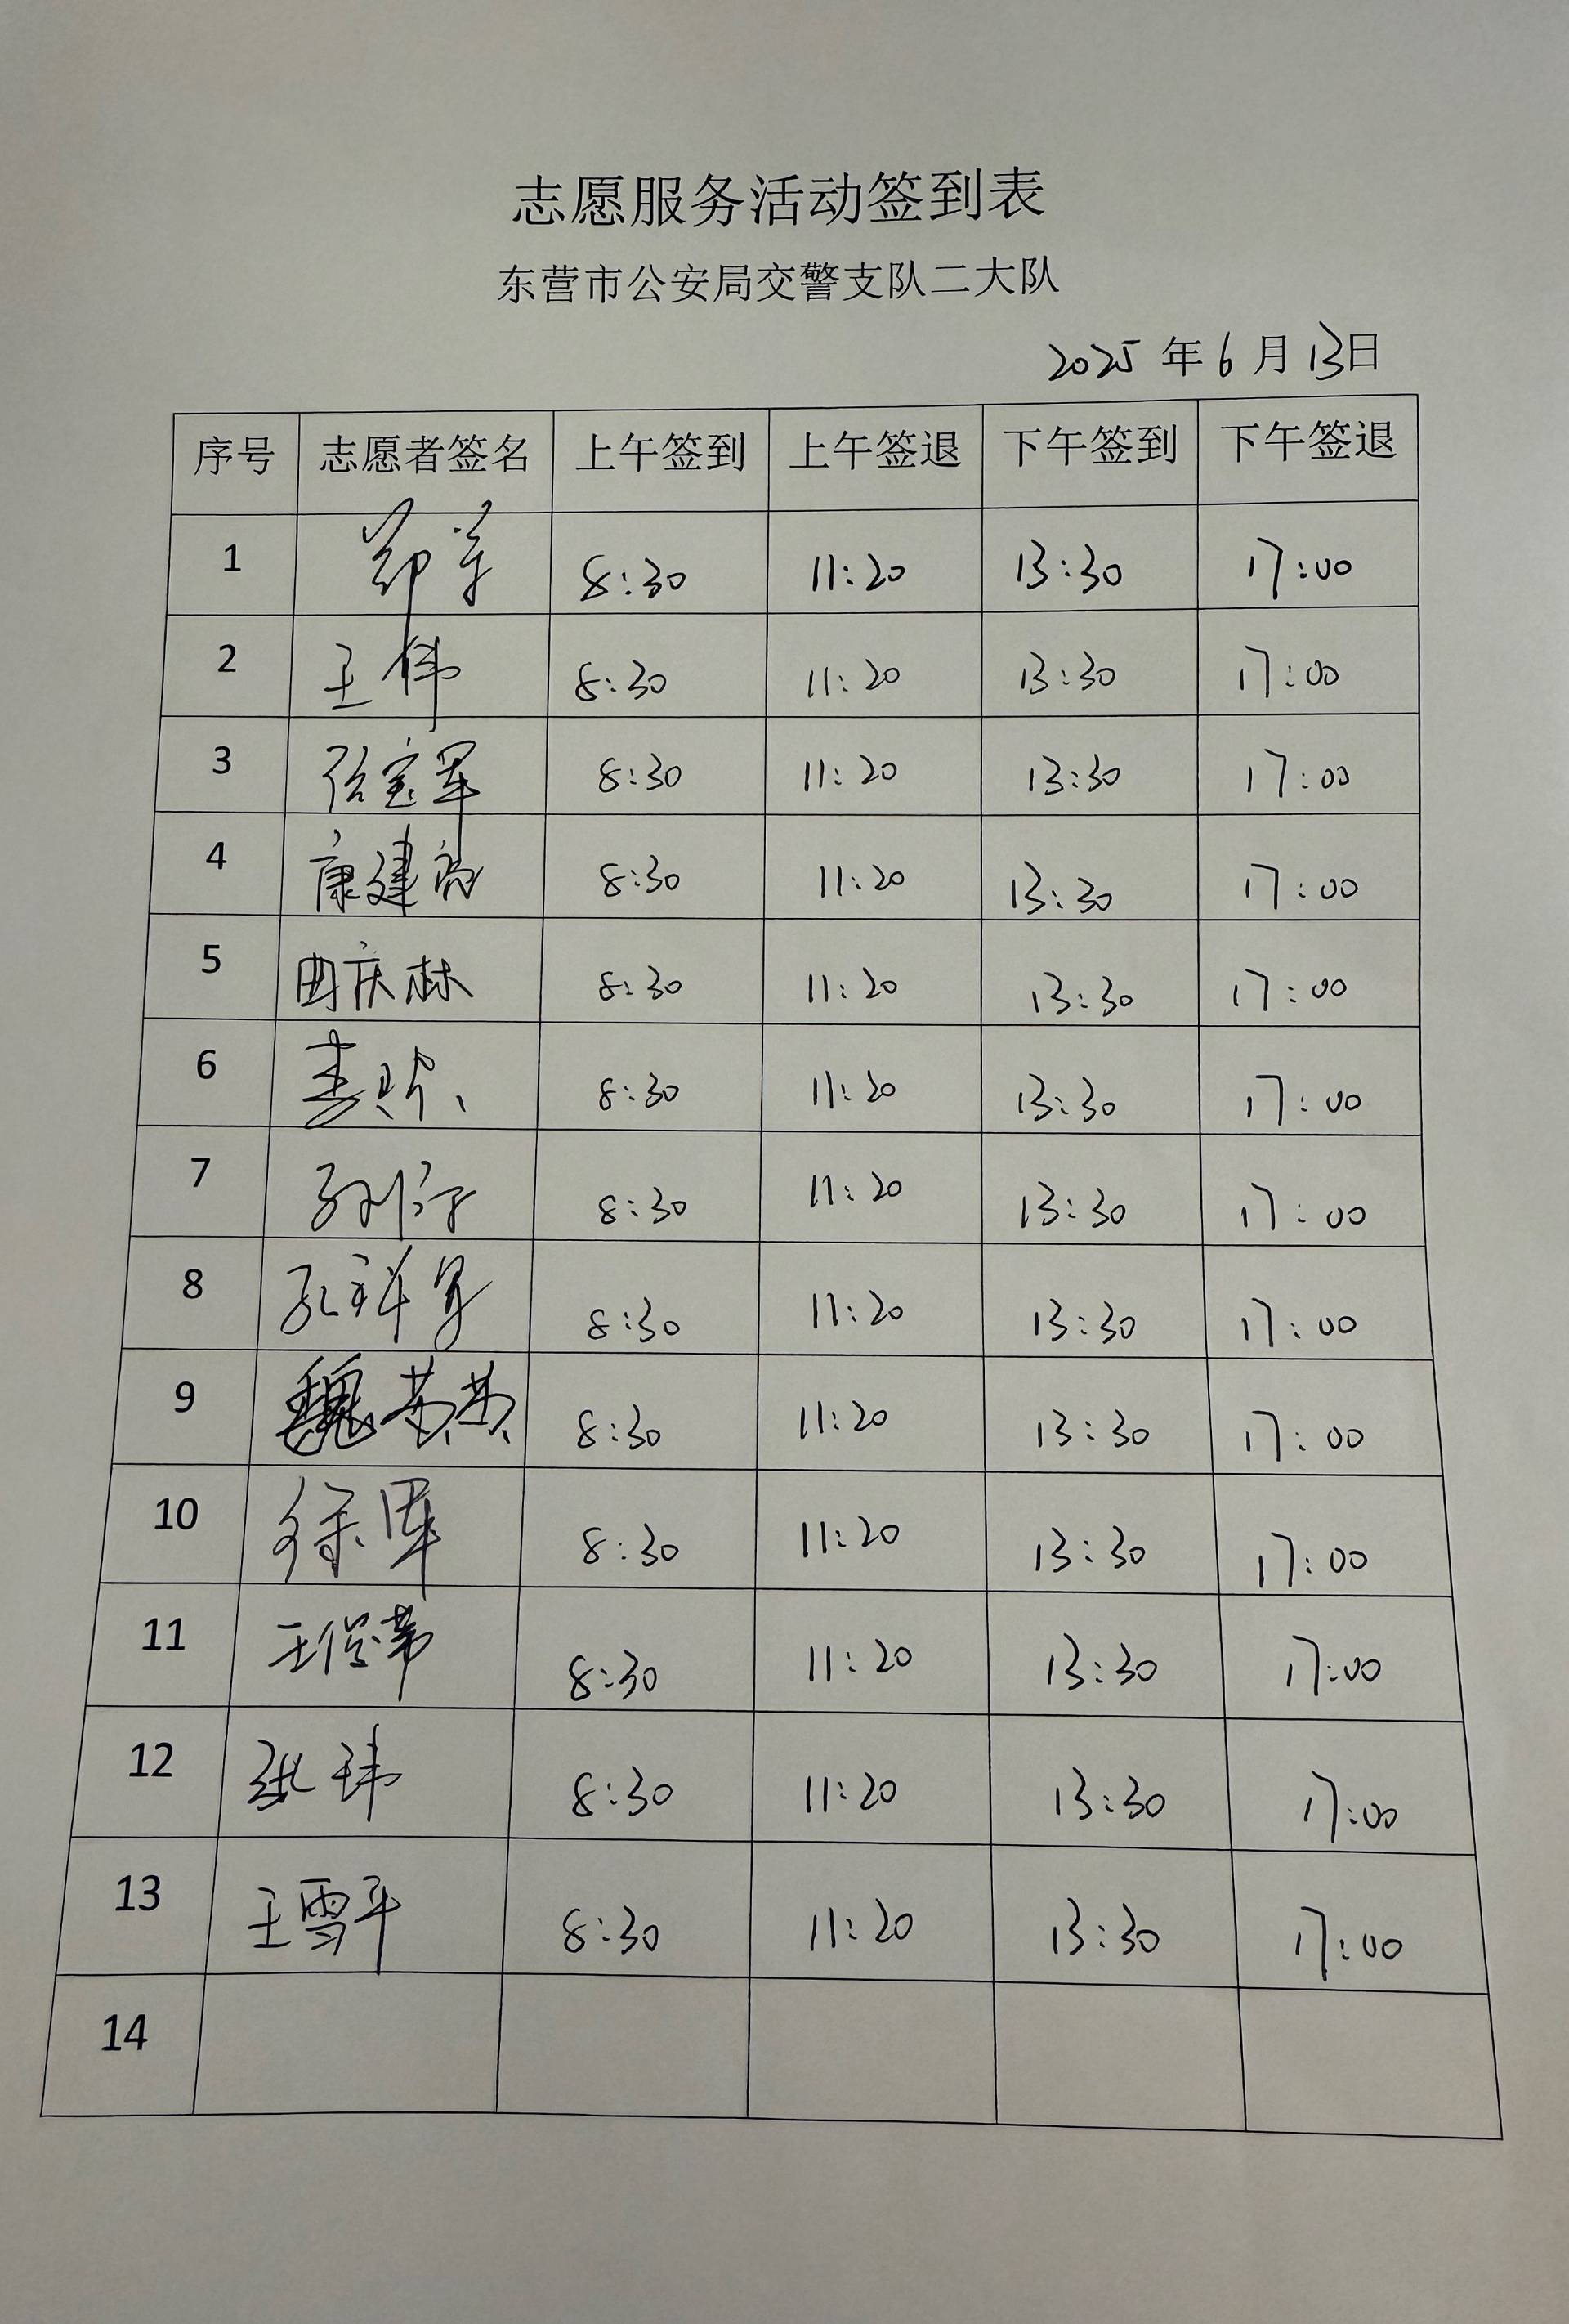 志愿服务活动签到表
东营市公安局交警支队二大队
2025 年 6 月 13日
序号 志愿者签名 上午签到 上午签退 下午签到 下午签退
1 8:30 11:20 13:30 17:00
2 王伟 8:30 11:20 13:30 17:00
3 张宝军 8:30 11:20 13:30 17:00
4 康建 8:30 11:20 13:30 17:00
5 田庆林 8:30 11:20 13:30 17:00
6 8:30 11:20 13:30 17:00
7 8:30 11:20 13:30 17:00
8 8:30 11:20 13:30 17:00
9 魏 8:30 11:20 13:30 17:00
10 徐军 8:30 11:20 13:30 17:00
11 王 8:30 11:20 13:30 17:00
12 张玮 8:30 11:20 13:30 17:00
13 王雪平 8:30 11:20 13:30 17:00
14